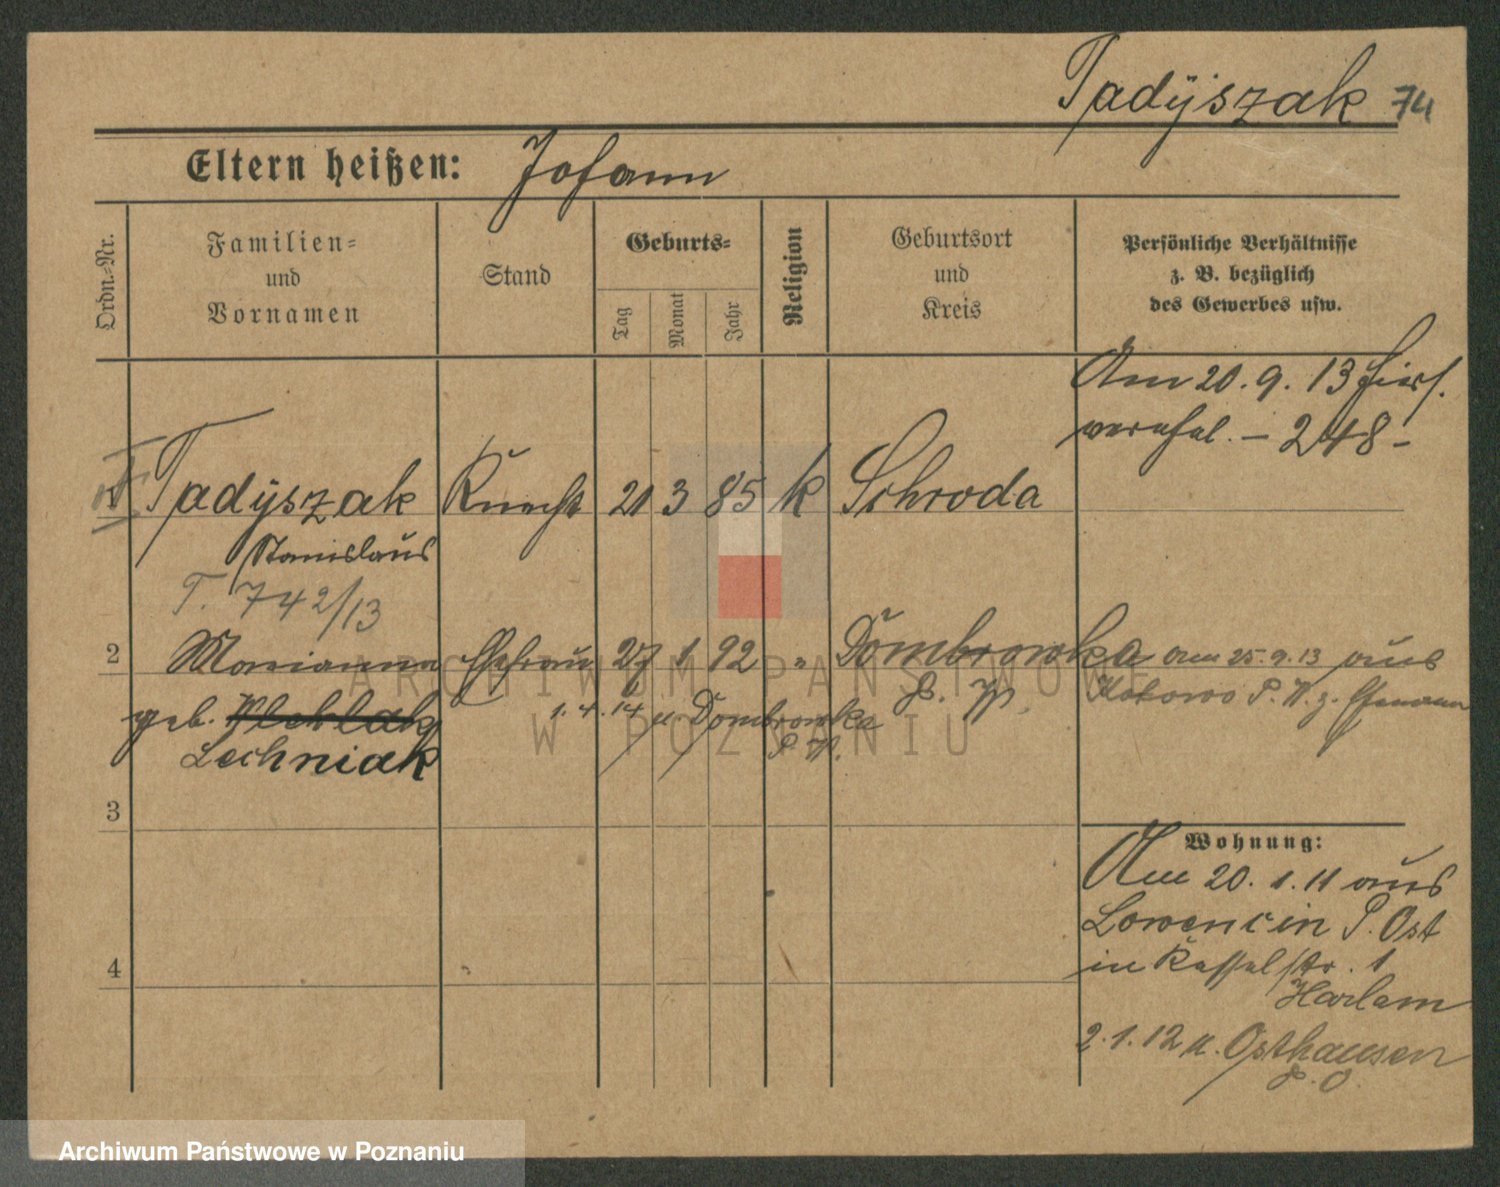 Tadÿszak 74
Eltern heißen: Johann
Ordn.-Nr.
Familien=
und
Vornamen
Stand
Geburts=
Tag
Monat
Jahr
Religion
Geburtsort
und
Kreis
Persönliche Verhältnisse
z. B. bezüglich
des Gewerbes usw.
Am 20. 9. 13 hier
verehel. – 248 –
1 Tadÿszak Knecht 21 3 85 k Schroda
Stanislaus
T. 742/13
2 Marianna Ehefrau 27 1 92 " Dombrowka am 25. 9. 13 aus
P. W. z. Ehemann
geb.
P. W.
1. 4. 14 n Dombrowka
P. W.
Lechniak
3
Wohnung:
Am 20. 1. 11 aus
Lowencin P. Ost
in Kasselstr. 1
Harlam
2. 1. 12 n. Osthausen
P. O.
4
ARCHIWUM PAŃSTWOWE
W POZNANIU
Archiwum Państwowe w Poznaniu